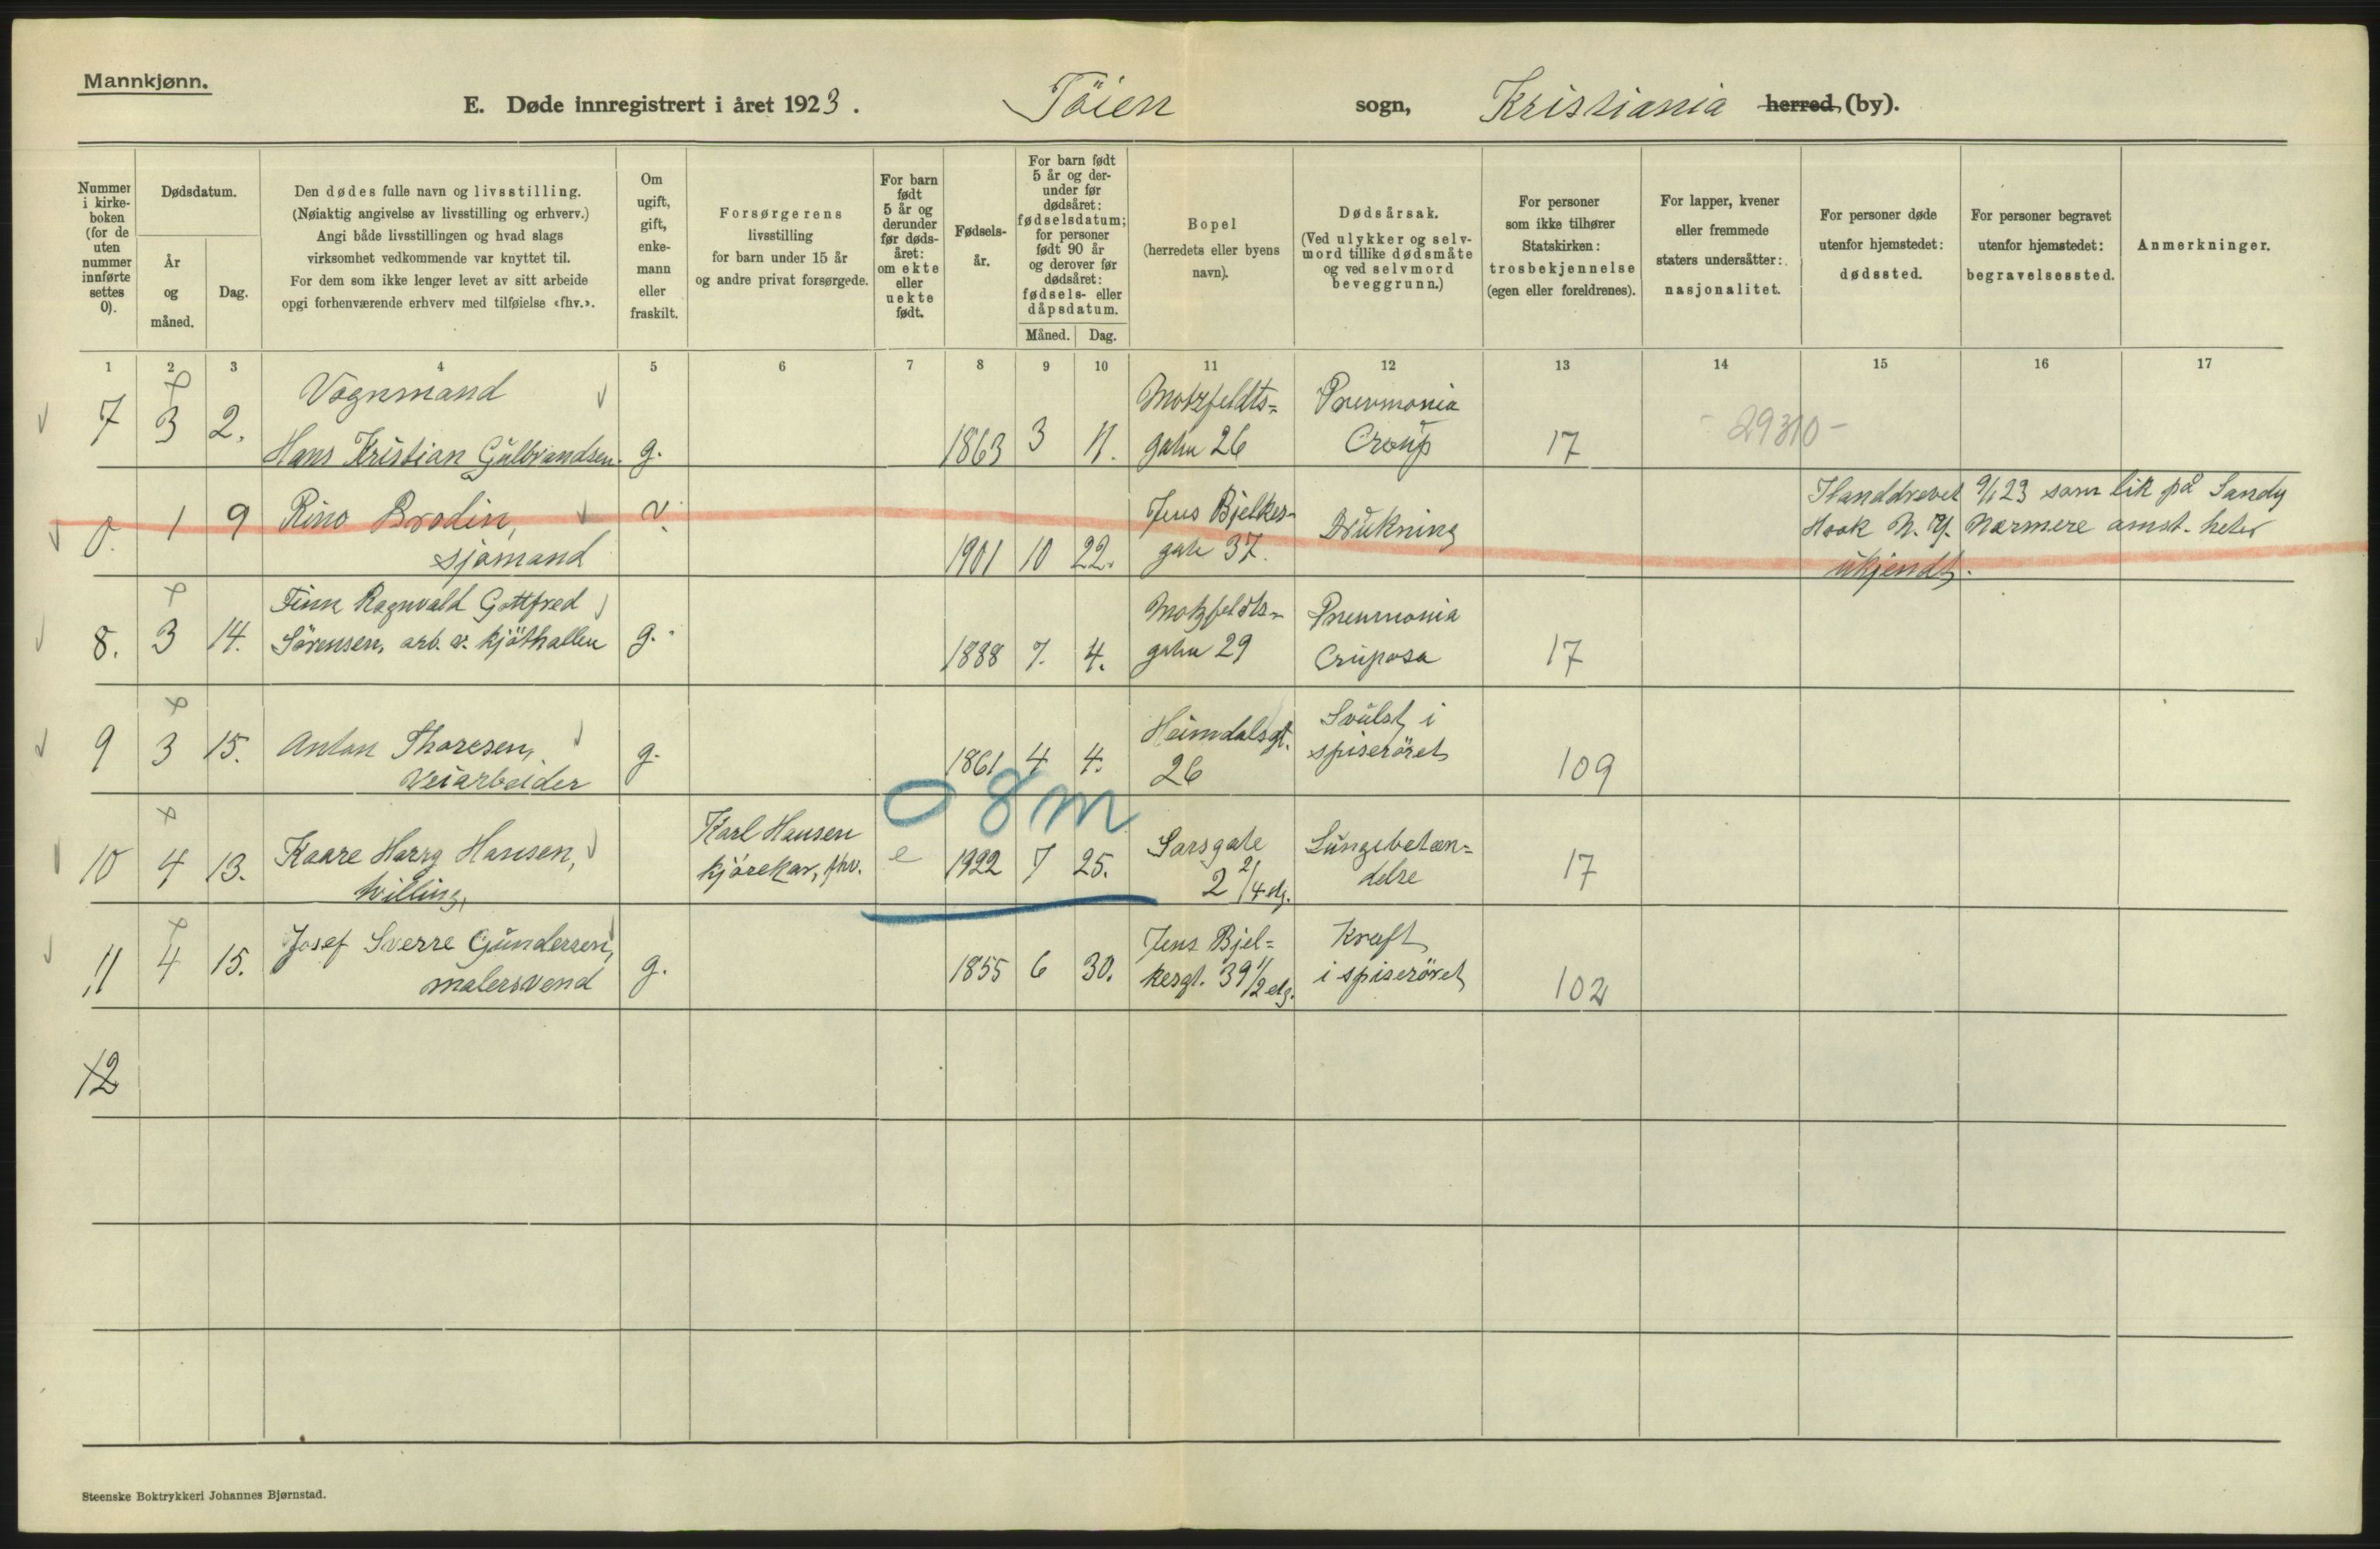 Mannkjønn.
E. Døde innregistrert i året 1923. Töien sogn, Kristiania herred (by).
Nummer i kirke-boken (for de uten nummer innførte settes 0).
Dødsdatum.
År og måned.
Dag.
Den dødes fulle navn og livsstilling.
(Nøiaktig angivelse av livsstilling og erhverv.)
Angi både livsstillingen og hvad slags
virksomhet vedkommende var knyttet til.
For dem som ikke lenger levet av sitt arbeide
opgi forhenværende erhverv med tilføielse «fhv.».
Om ugift, gift, enke-mann eller fraskilt.
Forsørgerens
livsstilling
for barn under 15 år
og andre privat forsørgede.
For barn født 5 år og derunder før døds-året: om ekte eller uekte født.
Fødsels-år.
For barn født 5 år og der-under før dødsåret: fødselsdatum; for personer født 90 år og derover før dødsåret: fødsels- eller dåpsdatum.
Måned. Dag.
Bopel
(herredets eller byens navn).
Dødsårsak.
(Ved ulykker og selv-mord tillike dødsmåte og ved selvmord beveggrunn.)
For personer som ikke tilhører Statskirken: trosbekjennelse (egen eller foreldrenes).
For lapper, kvener eller fremmede staters undersåtter: nasjonalitet.
For personer døde utenfor hjemstedet: dødssted.
For personer begravet utenfor hjemstedet: begravelsessted.
Anmerkninger.
1 2 3 4 5 6 7 8 9 10 11 12 13 14 15 16 17
7 3 2. Vognmand
Hans Kristian Gulbrandsen. g. 1863 3 11. Motzfeldts=
gaten 26 Pnevmonia
Croup 17 - 29310 -
0. 1 9 Rino Brodin,
sjömand 1901 10 22. Jens Bjelkes-
gate 37. Drukning Ilanddrevet 9/1 23 som lik på Sandy
Hook N. Y. Nærmere omst. heter
ukjendt.
8. 3 14. Finn Ragnvald Gottfred
Sörensen, arb. v. kjöthallen g. 1888 7. 4. Motzfeldts-
gaten 29 Pneumonia
Cruposa 17
9 3 15. Anton Thoresen,
Veiarbeider g. 1861 4 4. Heimdalsgt.
26 Svulst i
spiseröret 109
0 8m
10 4 13. Kaare Harry Hansen,
tvilling, Karl Hansen
kjörekar, fhv. e 1922 7 25. Sarsgate
2 2/4 etg. Lungebetæn=
delse 17
11 4 15. Josef Sverre Gundersen,
malersvend g. 1855 6 30. Jens Bjel=
kesgt. 39 1/2 etg. Kræft
i spiseröret 102
12
Steenske Boktrykkeri Johannes Bjørnstad.